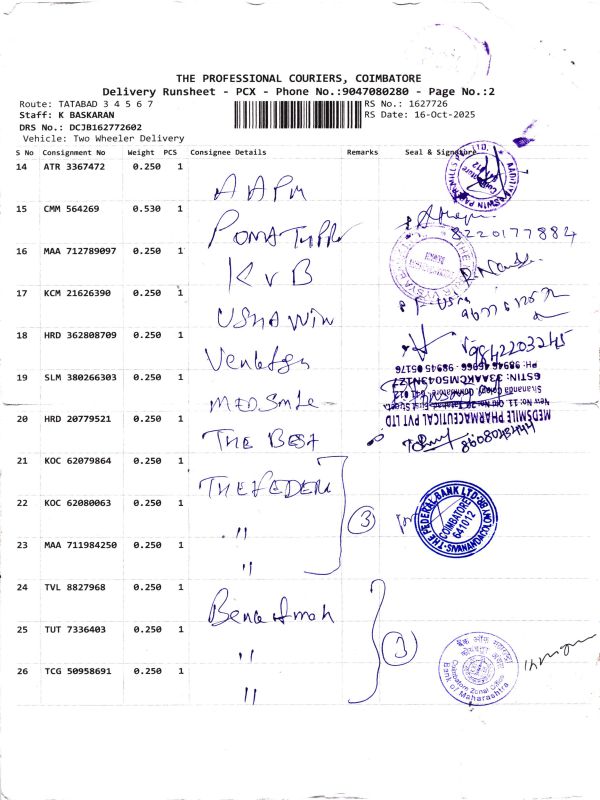 THE PROFESSIONAL COURIERS, COIMBATORE
Delivery Runsheet - PCX - Phone No.:9047080280 - Page No.:2
Route: TATABAD 3 4 5 6 7 RS No.: 1627726
Staff: K BASKARAN RS Date: 16-Oct-2025
DRS No.: DCJB162772602
Vehicle: Two Wheeler Delivery
S No Consignment No Weight PCS Consignee Details Remarks Seal & Signature
14 ATR 3367472 0.250 1
15 CMM 564269 0.530 1
8220177884
16 MAA 712789097 0.250 1 KVB
17 KCM 21626390 0.250 1 USHA WIN
18 HRD 362808709 0.250 1
9842203245
19 SLM 380266303 0.250 1 MEDSmile
PH: 98946 46066, 98945 05176
GSTIN: 33AAKCM5043N1Z7
MEDSMILE PHARMACEUTICAL PVT LTD
20 HRD 20779521 0.250 1 THE BEST
21 KOC 62079864 0.250 1 THE FEDERA
22 KOC 62080063 0.250 1 "
3
for
THE FEDERAL BANK LTD
COIMBATORE
641012
23 MAA 711984250 0.250 1 "
24 TVL 8827968 0.250 1
25 TUT 7336403 0.250 1 "
3
बैंक ऑफ महाराष्ट्र
Coimbatore Zonal Office
Bank of Maharashtra
26 TCG 50958691 0.250 1 "